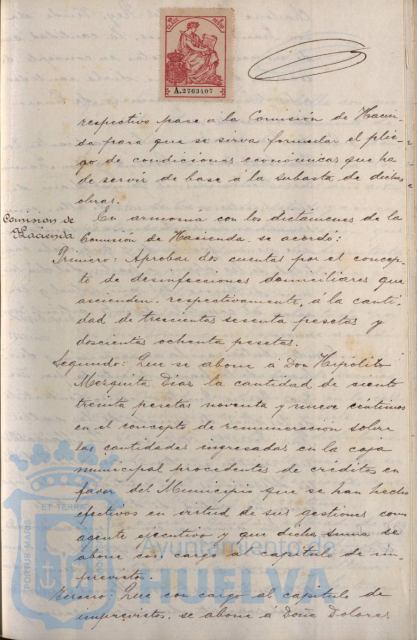 A.2763407
respectivo pase á la Comisión de Hacien-
da para que se sirva formular el plie-
go de condiciones económicas que ha
de servir de base á la subasta de dichas
obras.
Comisión de
Hacienda
En armonía con los dictámenes de la
Comisión de Hacienda se acordó:
Primero: Aprobar dos cuentas por el concep-
to de desinfecciones domiciliares que
ascienden respectivamente, á la canti-
dad de trescientas sesenta pesetas y
doscientas ochenta pesetas.
Segundo: Que se abone á Don Hipólito
Mezquita Díaz la cantidad de ciento
treinta pesetas noventa y nueve céntimos
en el concepto de remuneración sobre
las cantidades ingresadas en la caja
municipal procedentes de créditos en
favor del Municipio que se han hecho
efectivos en virtud de sus gestiones como
agente ejecutivo y que dicha suma se
abone con cargo al capítulo de im-
previstos.
Tercero: Que con cargo al capítulo de
imprevistos, se abone á Doña Dolores
Ayuntamiento de
HUELVA